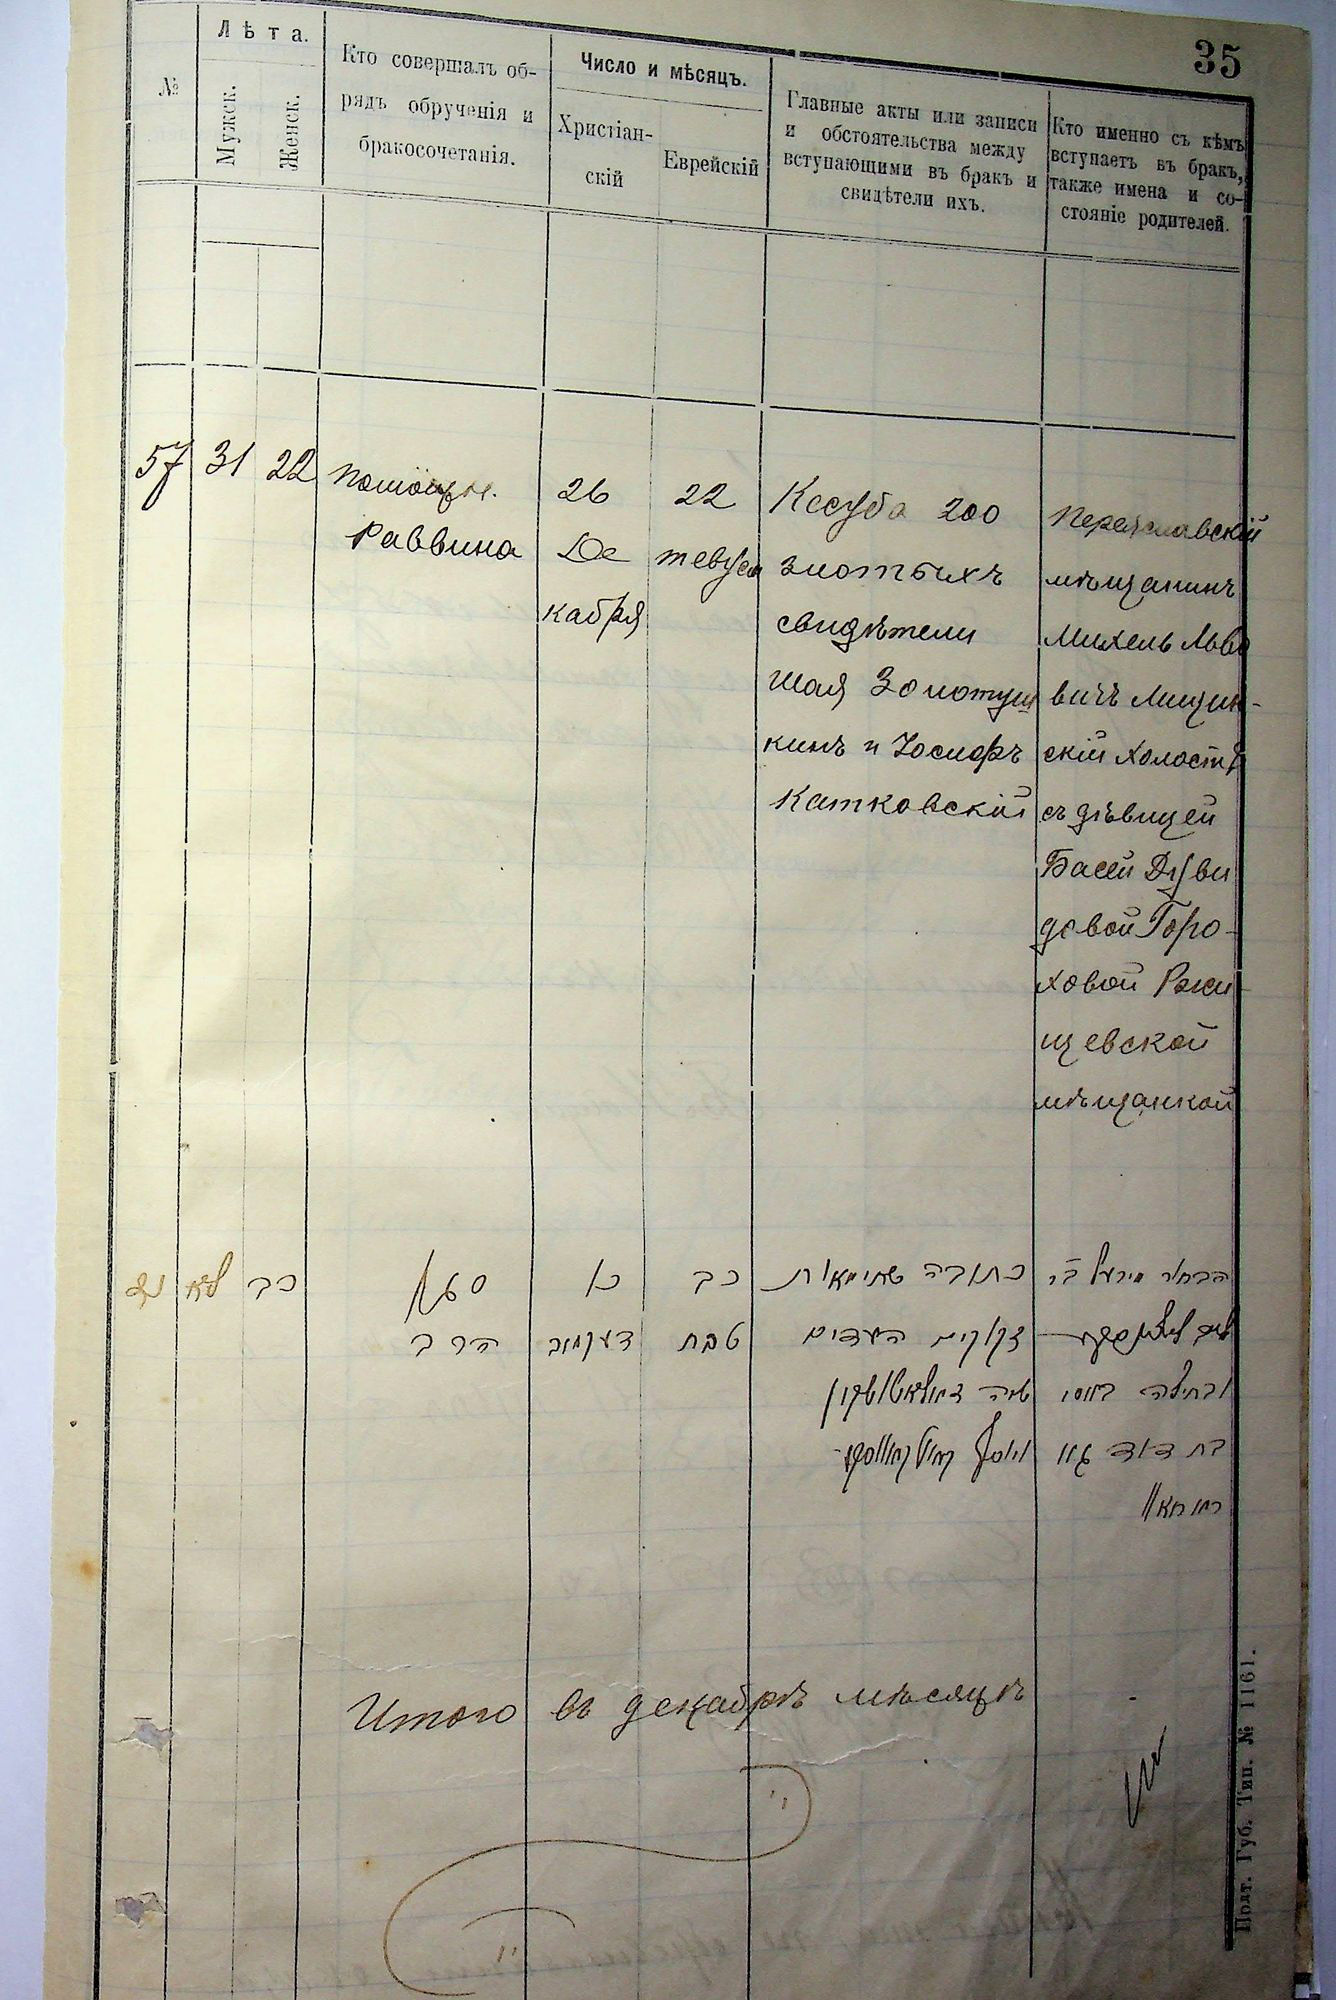 35
№
Лѣта.
Мужск.
Женск.
Кто совершалъ об-
рядъ обрученія и
бракосочетанія.
Число и мѣсяцъ.
Христіан-
скій
Еврейскій
Главные акты или записи
и обстоятельства между
вступающими въ бракъ и
свидѣтели ихъ.
Кто именно съ кѣмъ
вступаетъ въ бракъ,
также имена и со-
стояніе родителей.
57
31
22
помощн.
Раввина
26
Де
кабря
22
тевуса
Кесуба 200
злотыхъ
свидѣтели
Шая Золотуш
кинъ и Іосифъ
Катковскій
Переяславскій
мѣщанинъ
Михель Льво
вичъ Лищин-
скій холостъ
съ дѣвицей
Басей Дуви
довой Горо-
ховой Ржи
щевской
мѣщанкой
נז
לא
כב
סגן
הרב
כו
דעקאב
כב
טבת
כתובה שתי מאות
זקוקים העדים
שיה זאלאטושקין
ויוסף קאטקאווסקי
הבחור מיכעל בר
ליב לישצינסקי
ובתולה באסי
בת דוד גא
ראחאוו
Итого въ декабрѣ мѣсяцѣ
Полт. Губ. Тип. № 1161.